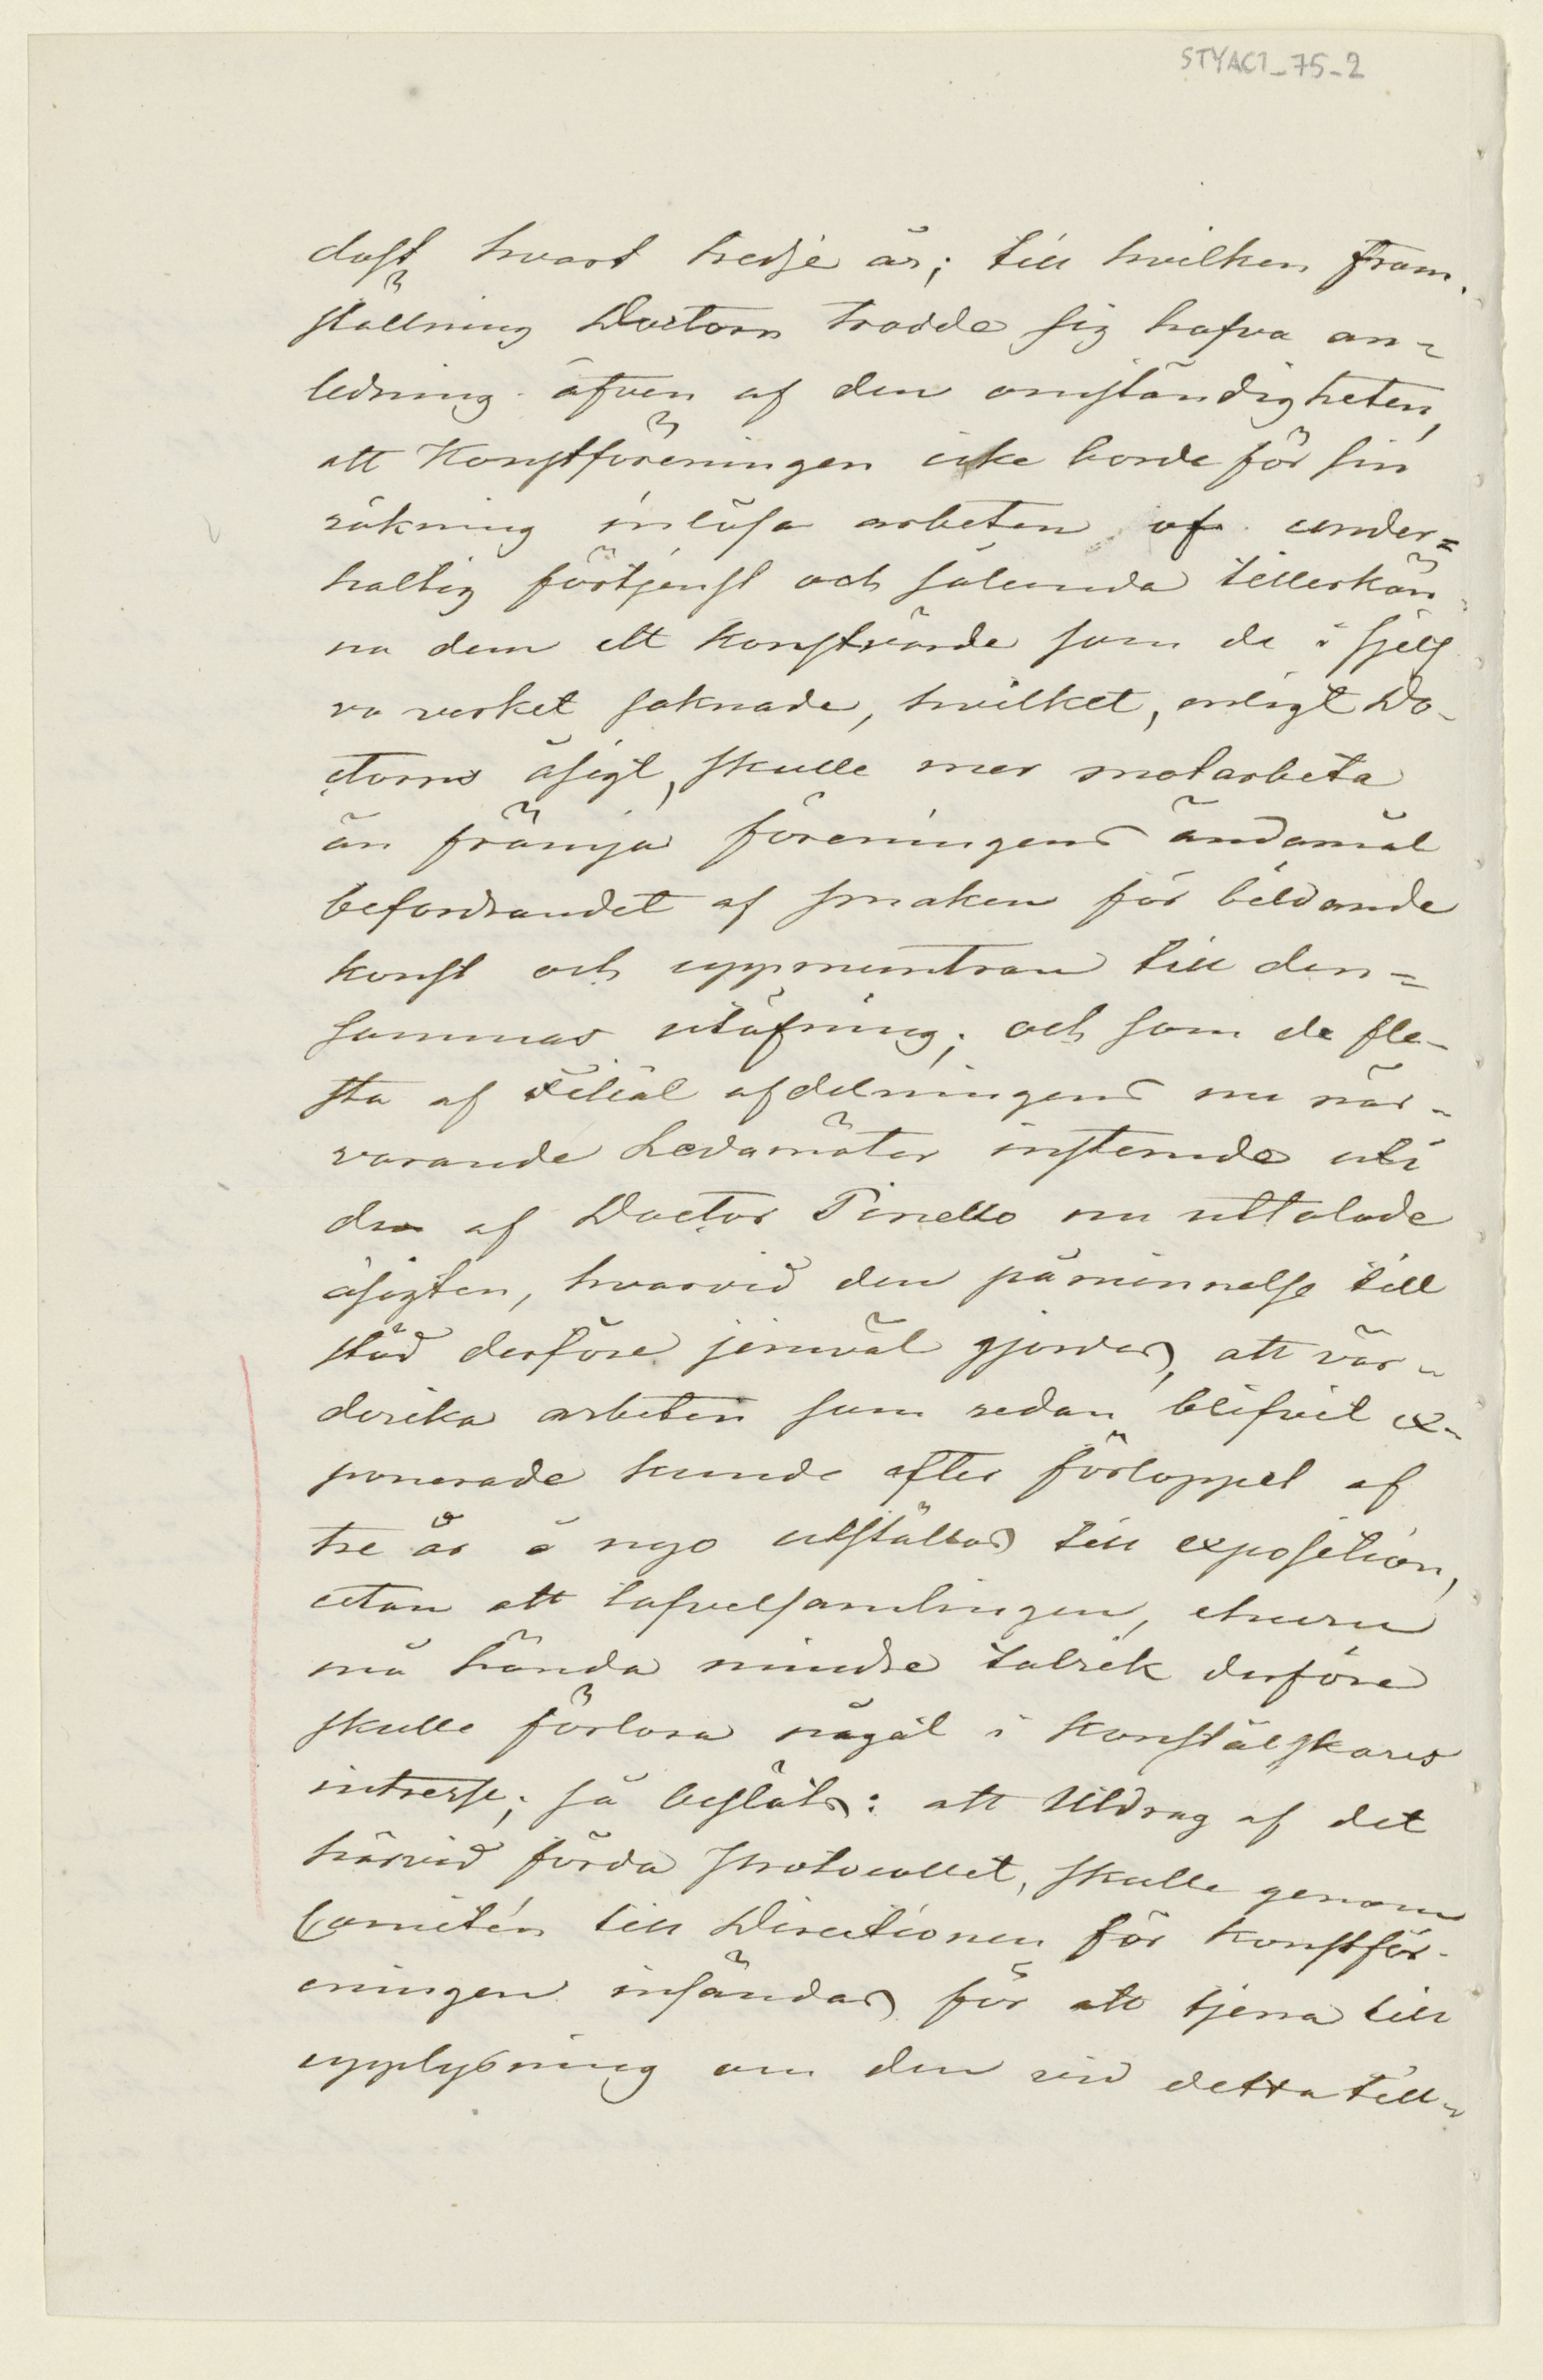 STYACT_75-2
dast hvart tredje år; till hvilken fram-
ställning Doctorn trodde sig hafva an-
ledning äfven af den omständigheten,
att Konstföreningen icke borde för sin
räkning inlösa arbeten af under=
haltig förtjenst och sålunda tillerkän-
na dem ett konstvärde som de i sjelf
va verket saknade, hvilket, enligt Do-
ctorns åsigt, skulle mer motarbeta
än främja föreningens ändamål
befordrandet af smaken för bildande
konst och uppmuntran till den=
sammas utöfning; och som de fle-
sta af Filial afdelningens nu när-
varande Ledamöter instemde uti
den af Doctor Pinello nu uttalade
åsigten, hvarvid den påminnelse till
stöd derföre jemväl gjordes, att vär-
derika arbeten som redan blifvit ex-
ponerade kunde efter förloppet af
tre år å nyo utställas till exposition,
utan att tafvelsamlingen, ehuru
må hända mindre talrik derföre
skulle förlora något i konstälskares
intresse; så beslöts: att Utdrag af det
härvid förda Protocollet, skulle genom
Comitén till Directionen för Konstför-
eningen insändas för att tjena till
upplysning om den vid detta till-